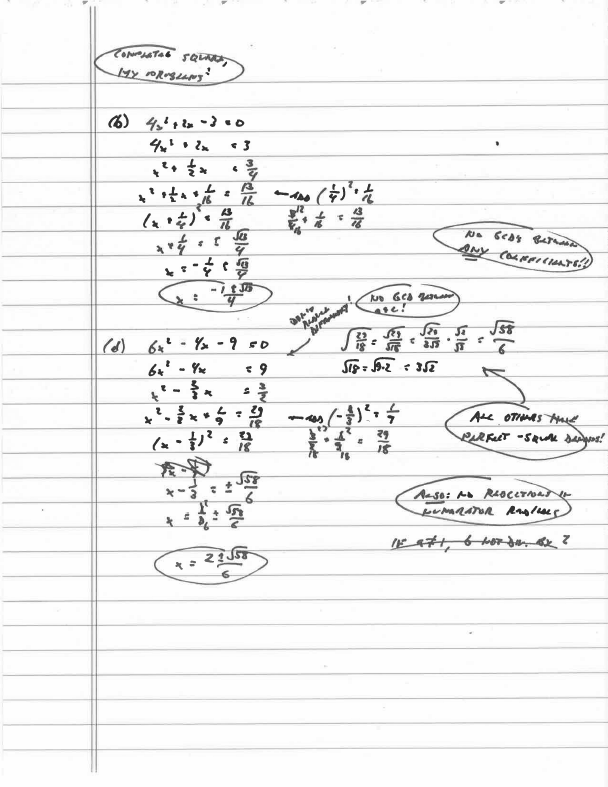 COMPLETING SQUARE,
MY PROBLEMS:
(b) 4x² + 2x - 3 = 0
4x² + 2x = 3
x² + 1/2 x = 3/4
x² + 1/2 x + 1/16 = 13/16 ← ADD (1/4)² = 1/16
(x + 1/4)² = 13/16
3/4 12/16 + 1/16 = 13/16
x + 1/4 = ± √13/4
x = - 1/4 ± √13/4
x = -1 ± √13 / 4
NO GCDS BETWEEN
ANY COEFFICIENTS!!
NO GCD BETWEEN
a & c!
(d) 6x² - 4x - 9 = 0
6x² - 4x = 9
x² - 2/3 x = 3/2
x² - 2/3 x + 1/9 = 29/18 ← ADD (- 1/3)² = 1/9
(x - 1/3)² = 29/18
3/2 27/18 + 1/9 2/18 = 29/18
x - 1/3 = ± √58/6
x = 1/3 2/6 ± √58/6
x = 2 ± √58 / 6
√29/18 = √29/√18 = √29/3√2 · √2/√2 = √58/6
√18 = √9·2 = 3√2
ALL OTHERS HAVE
PERFECT-SQUARE DENOMS!
ALSO: NO REDUCTIONS IN
NUMERATOR RADICALS
IF a≠1, b NOT DIV. BY 2